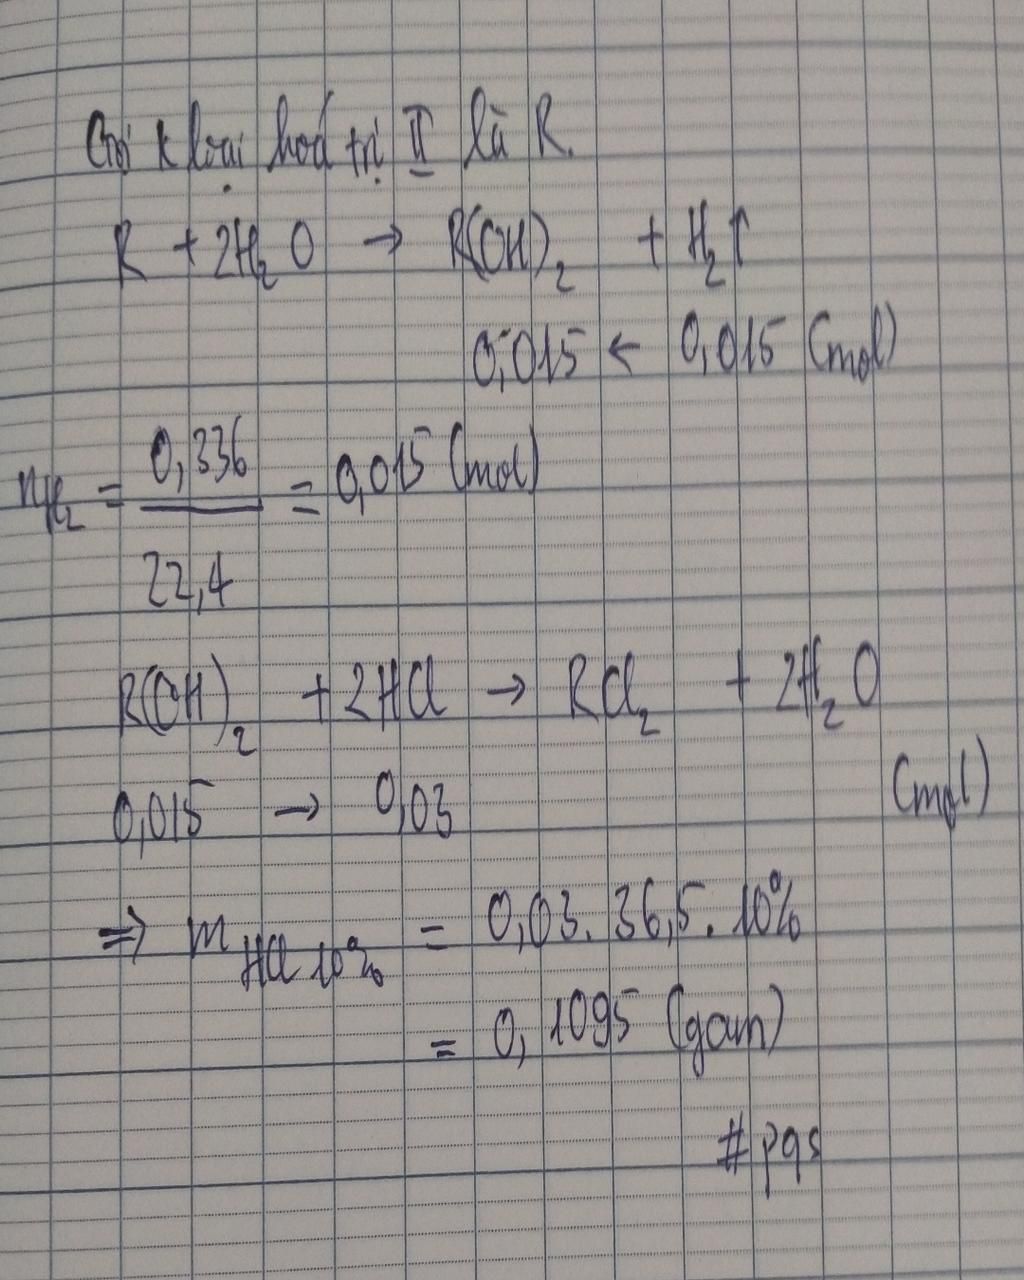 Gọi k loại hoá trị II là R.
R + 2H₂O → R(OH)₂ + H₂↑
0,015 ← 0,015 (mol)
nH₂ = 0,336 / 22,4 = 0,015 (mol)
R(OH)₂ + 2HCl → RCl₂ + 2H₂O
0,015 → 0,03 (mol)
⇒ m HCl 10% = 0,03. 36,5. 10%
= 0,1095 (gam)
# pqs